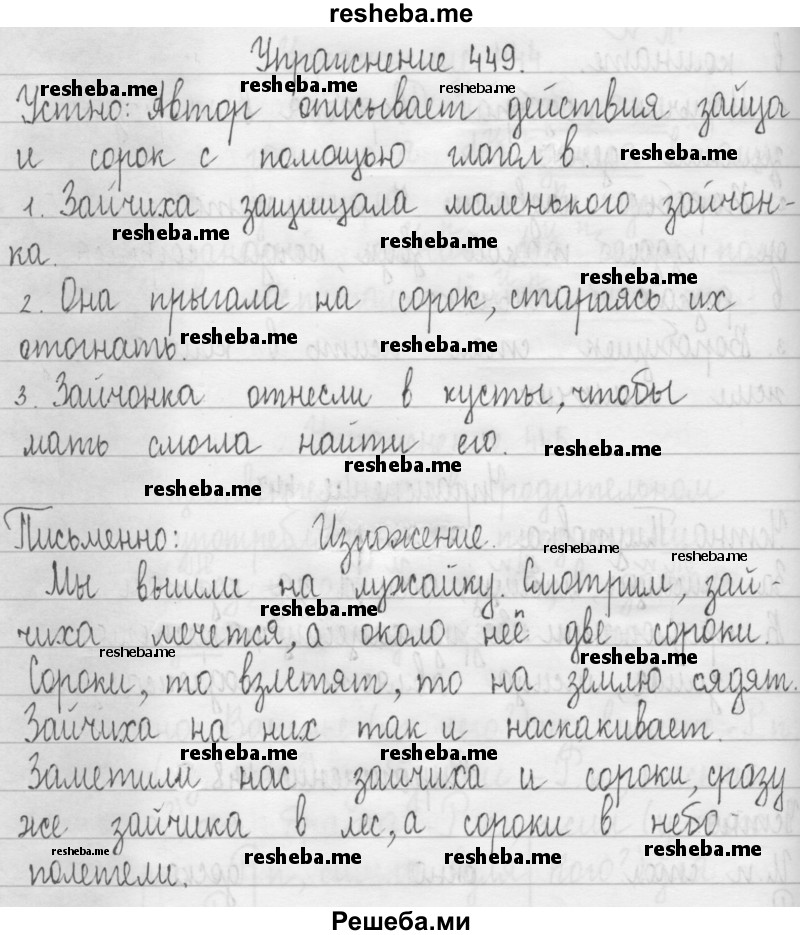 resheba.me
Упражнение 449.
resheba.me resheba.me resheba.me
Устно: Автор описывает действия зайца
и сорок с помощью глагол в. resheba.me
1. Зайчиха защищала маленького зайчон-
resheba.me resheba.me
ка.
resheba.me
2. Она прыгала на сорок, стараясь их
отогнать. resheba.me resheba.me
3. Зайчонка отнесли в кусты, чтобы
мать смогла найти его. resheba.me
resheba.me
resheba.me
Письменно: Изложение.
resheba.me resheba.me
Мы вышли на лужайку. Смотрим, зай-
resheba.me
чиха мечется, а около неё две сороки.
resheba.me resheba.me
Сороки, то взлетят, то на землю сядят.
Зайчиха на них так и наскакивает.
resheba.me resheba.me
Заметили нас зайчиха и сороки, сразу
же зайчика в лес, а сороки в небо
resheba.me resheba.me resheba.me resheba.me
полетели.
Решеба.ми